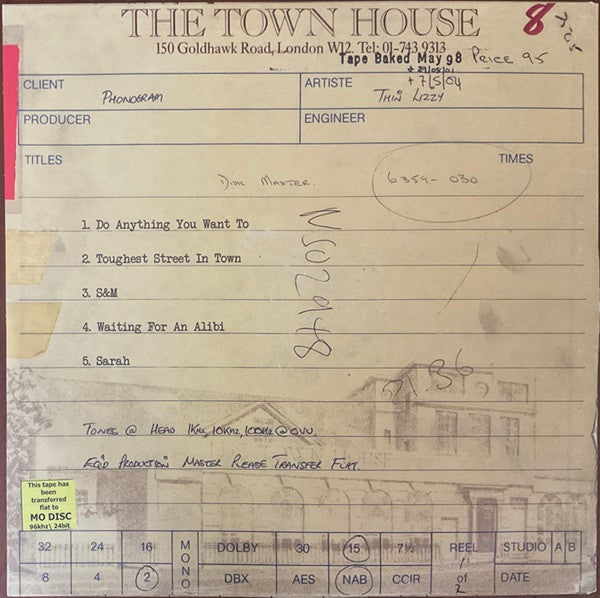 THE TOWN HOUSE
8
150 Goldhawk Road, London W12. Tel: 01-743 9313
Tape Baked May 98
+ 7/5/04
CLIENT
PHONOGRAM
ARTISTE
THIN LIZZY
PRODUCER
ENGINEER
TITLES
TIMES
DISK MASTER.
6359-030
1. Do Anything You Want To
2. Toughest Street In Town
3. S&M
4. Waiting For An Alibi
5. Sarah
NS02948
21.36
TONES @ HEAD 1KHz, 10KHz, 100Hz @ 0VU.
EQ'D PRODUCTION MASTER PLEASE TRANSFER FLAT.
This tape has
been
transferred
flat to
MO DISC
96khz\ 24bit
32 24 16 MONO DOLBY 30 15 7½ REEL STUDIO A B
8 4 2 DBX AES NAB CCIR 1 of 2 DATE